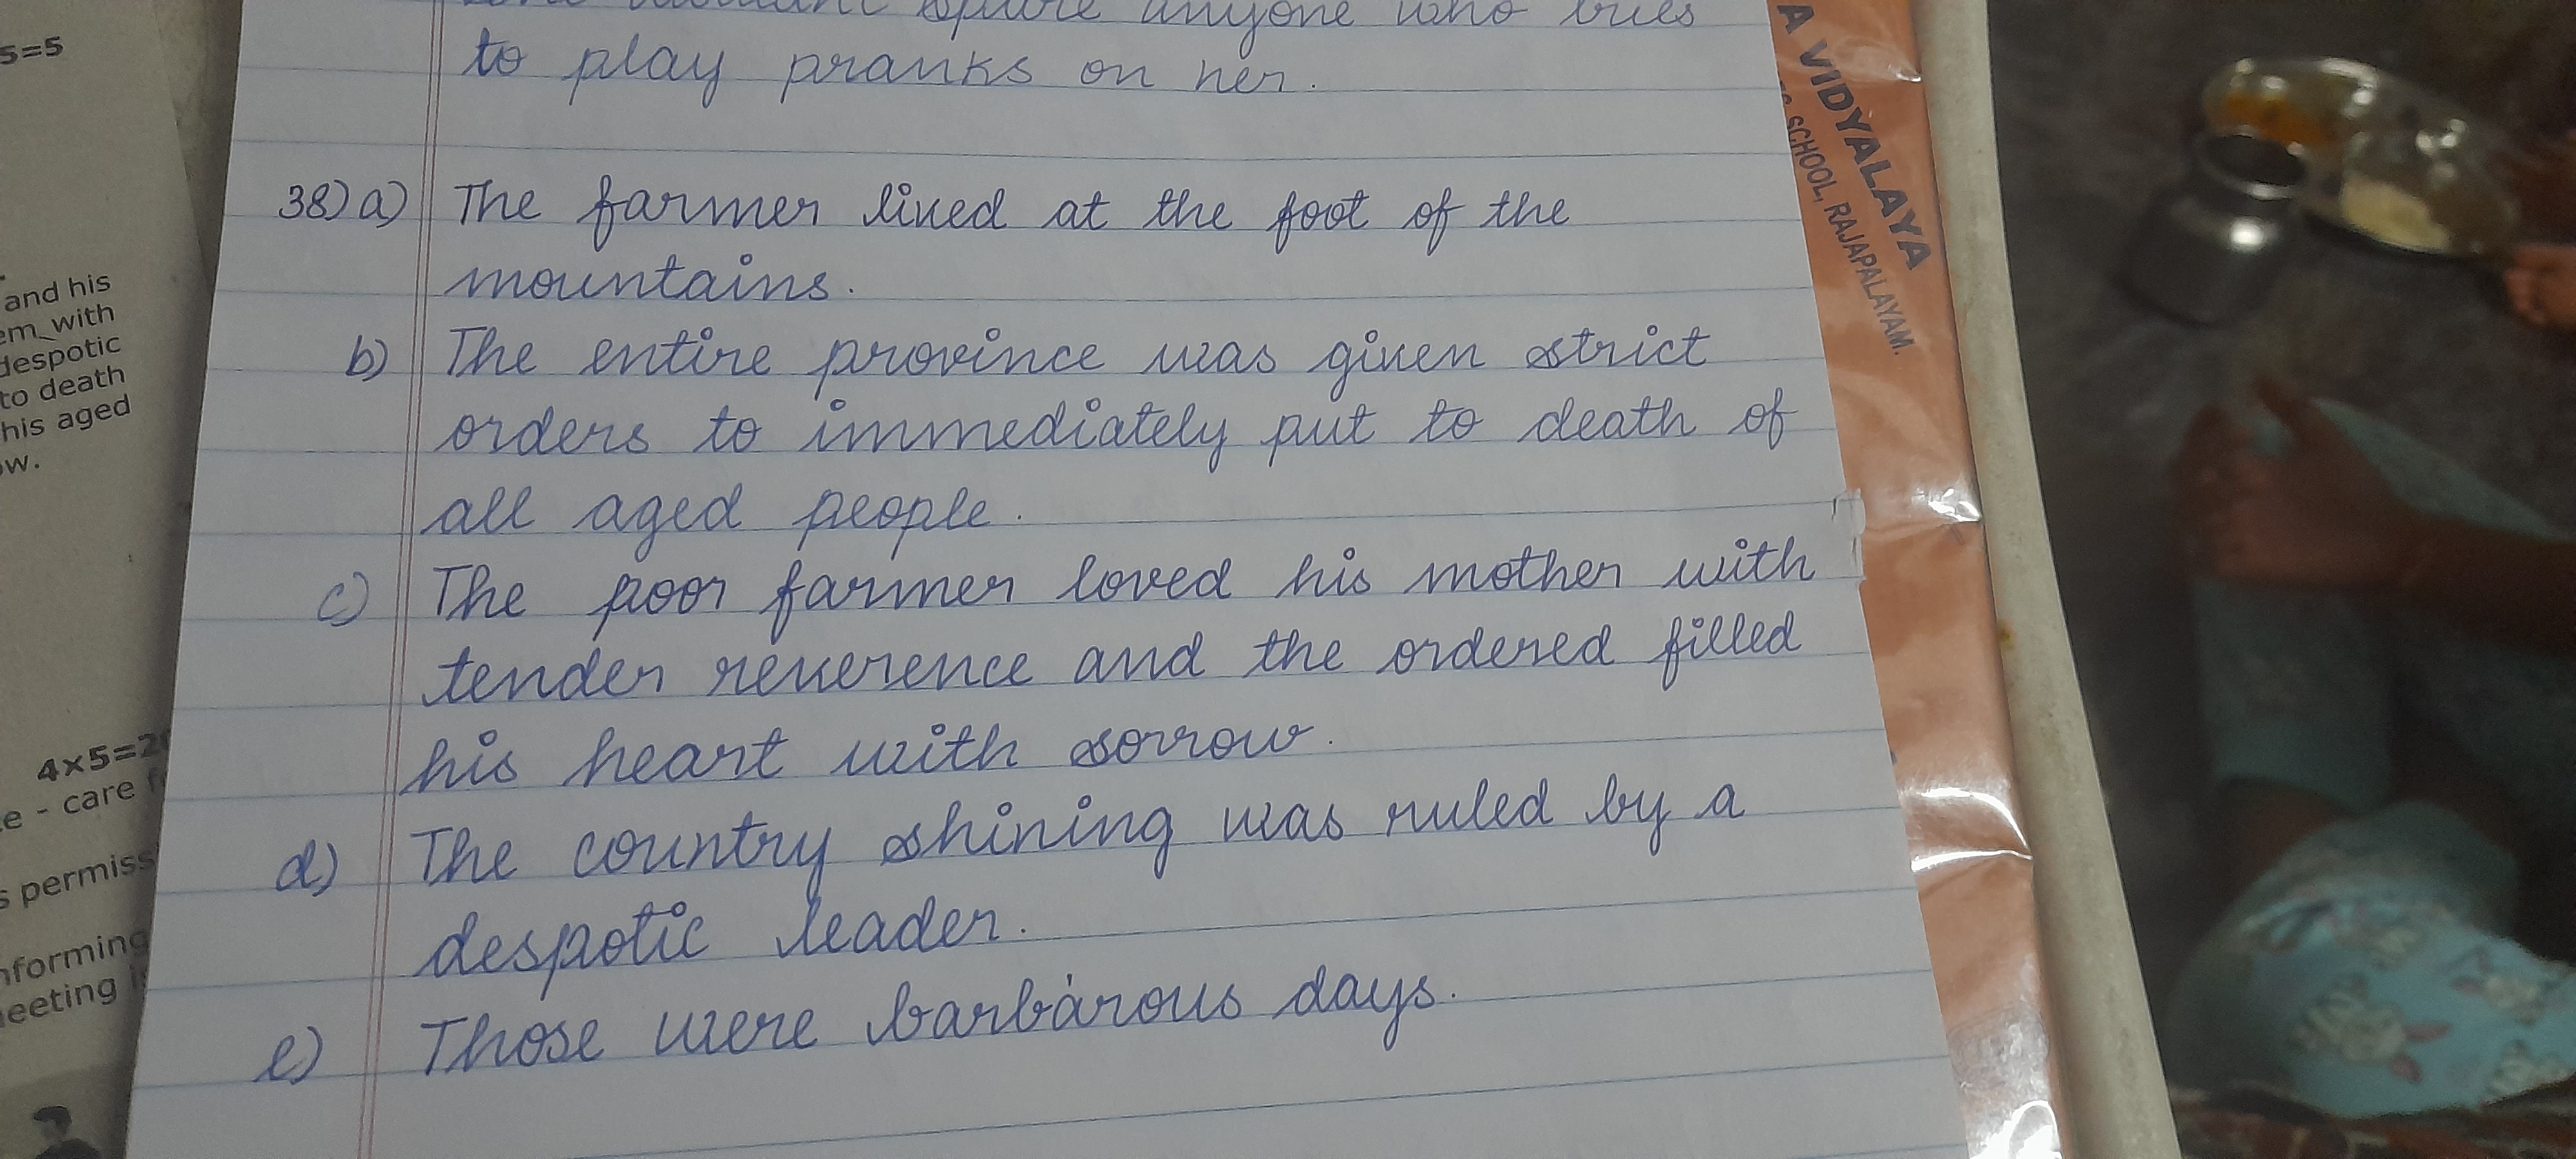 5=5
and his
em with
despotic
to death
his aged
ow.
4×5=20
e - care f
s permiss
nforming
eeting i
spare anyone who tries
to play pranks on her.
38) a) The farmer lived at the foot of the
mountains.
b) The entire province was given strict
orders to immediately put to death of
all aged people.
c) The poor farmer loved his mother with
tender reverence and the ordered filled
his heart with sorrow.
d) The country shining was ruled by a
despotic leader.
e) Those were barbarous days.
A VIDYALAYA
SCHOOL, RAJAPALAYAM.